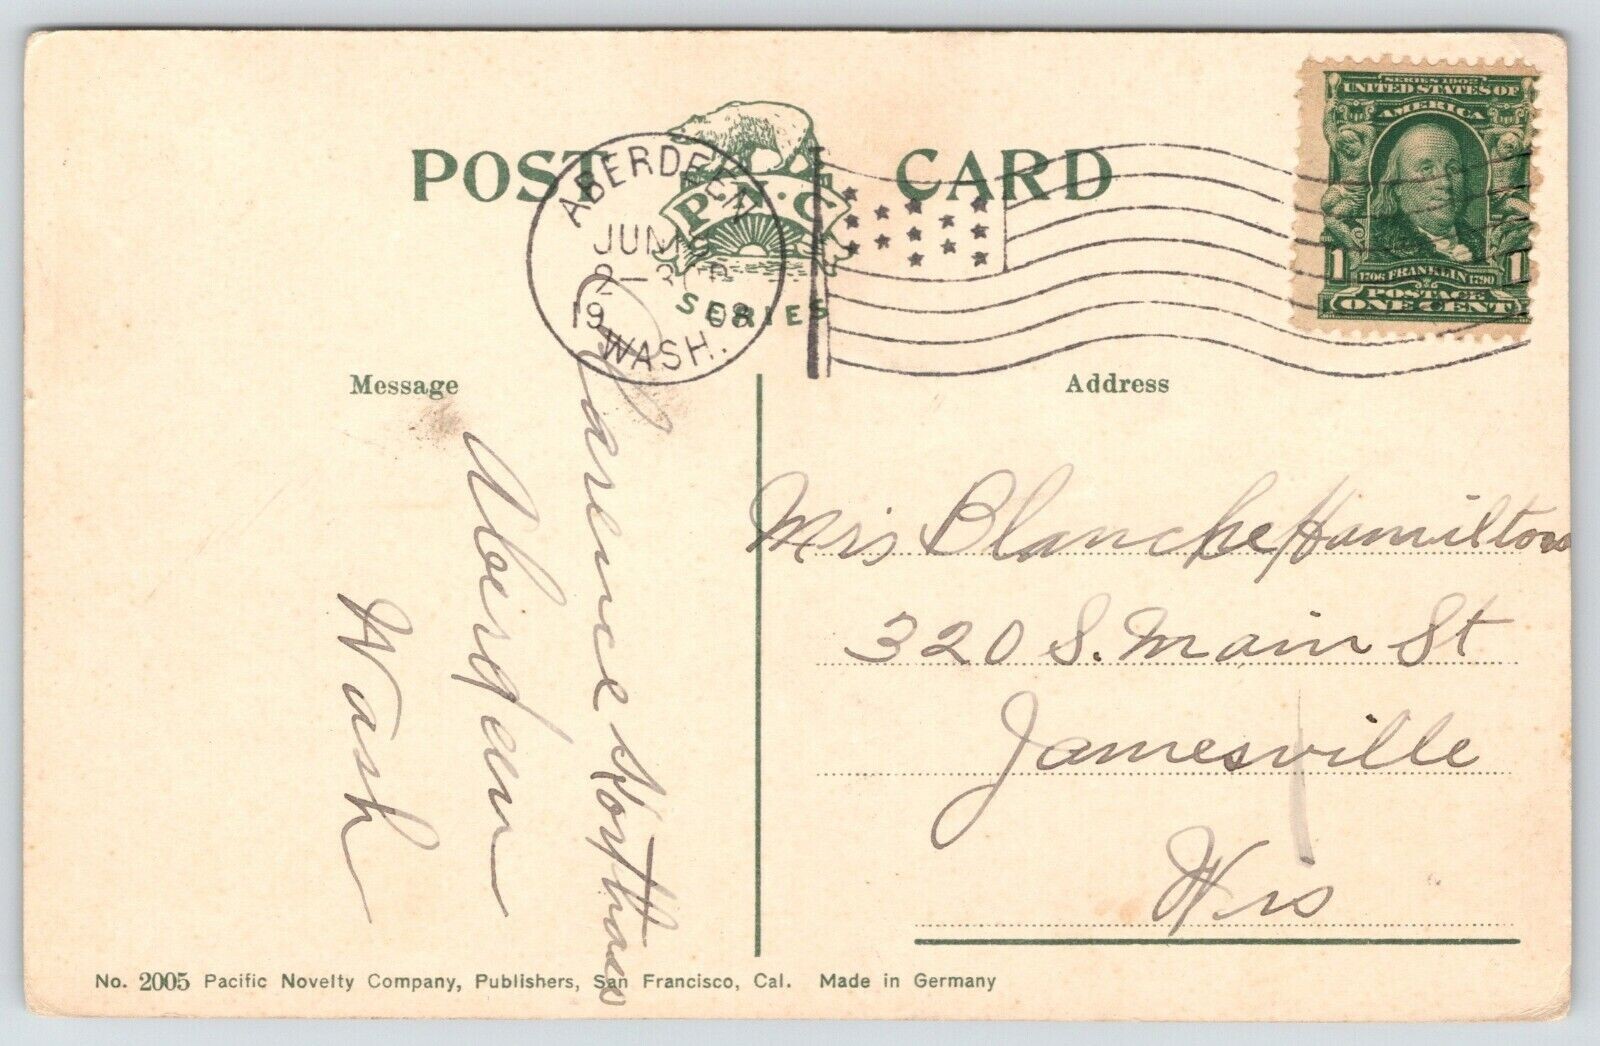 POST CARD
P. N. C.
SERIES
ABERDEEN
JUN
2-3 P
1908
WASH.
SERIES 1902
UNITED STATES OF
AMERICA
1706 FRANKLIN 1790
1 1
POSTAGE
ONE CENT
Message
Address
Clarence
Aberdeen
Wash
Miss Blanche Hamilton
320 S. Main St
Jamesville
Wis
No. 2005 Pacific Novelty Company, Publishers, San Francisco, Cal. Made in Germany